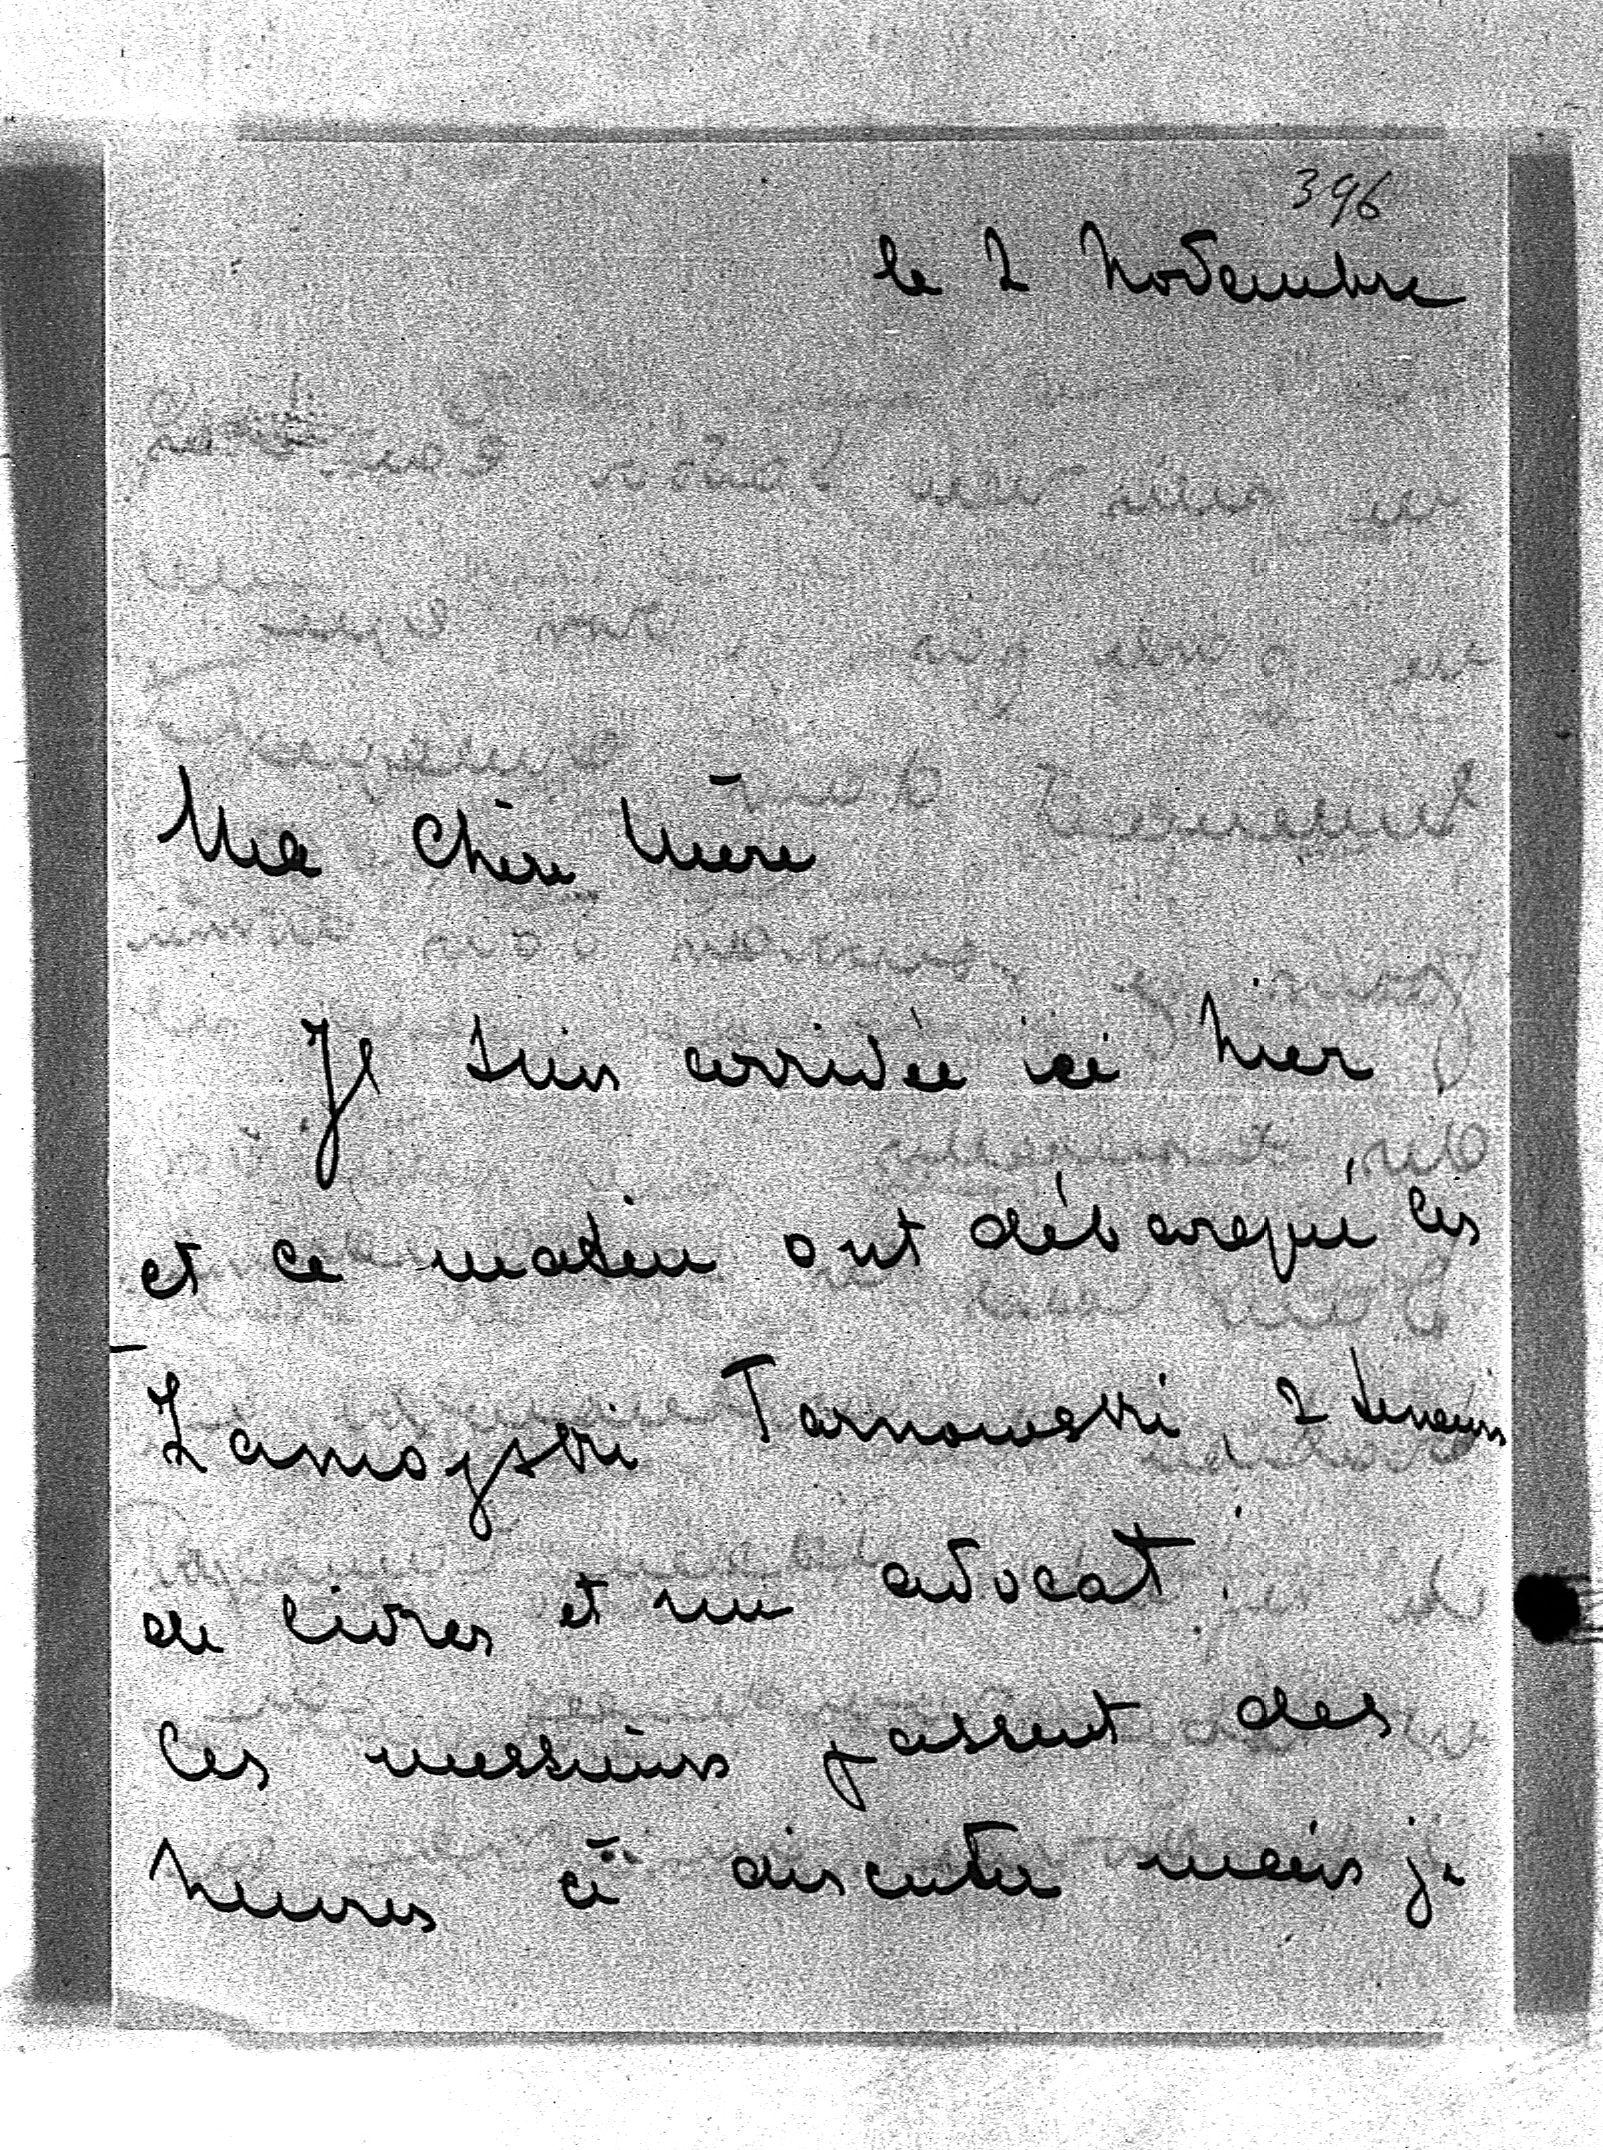 396
le 2 Novembre
Ma Chère Mère
Je suis arrivée ici hier
et ce matin ont débarqué les
Zamoyski Tarnowski, 2 teneurs
de livres et un avocat.
Ces messieurs passent des
heures à discuter mais je